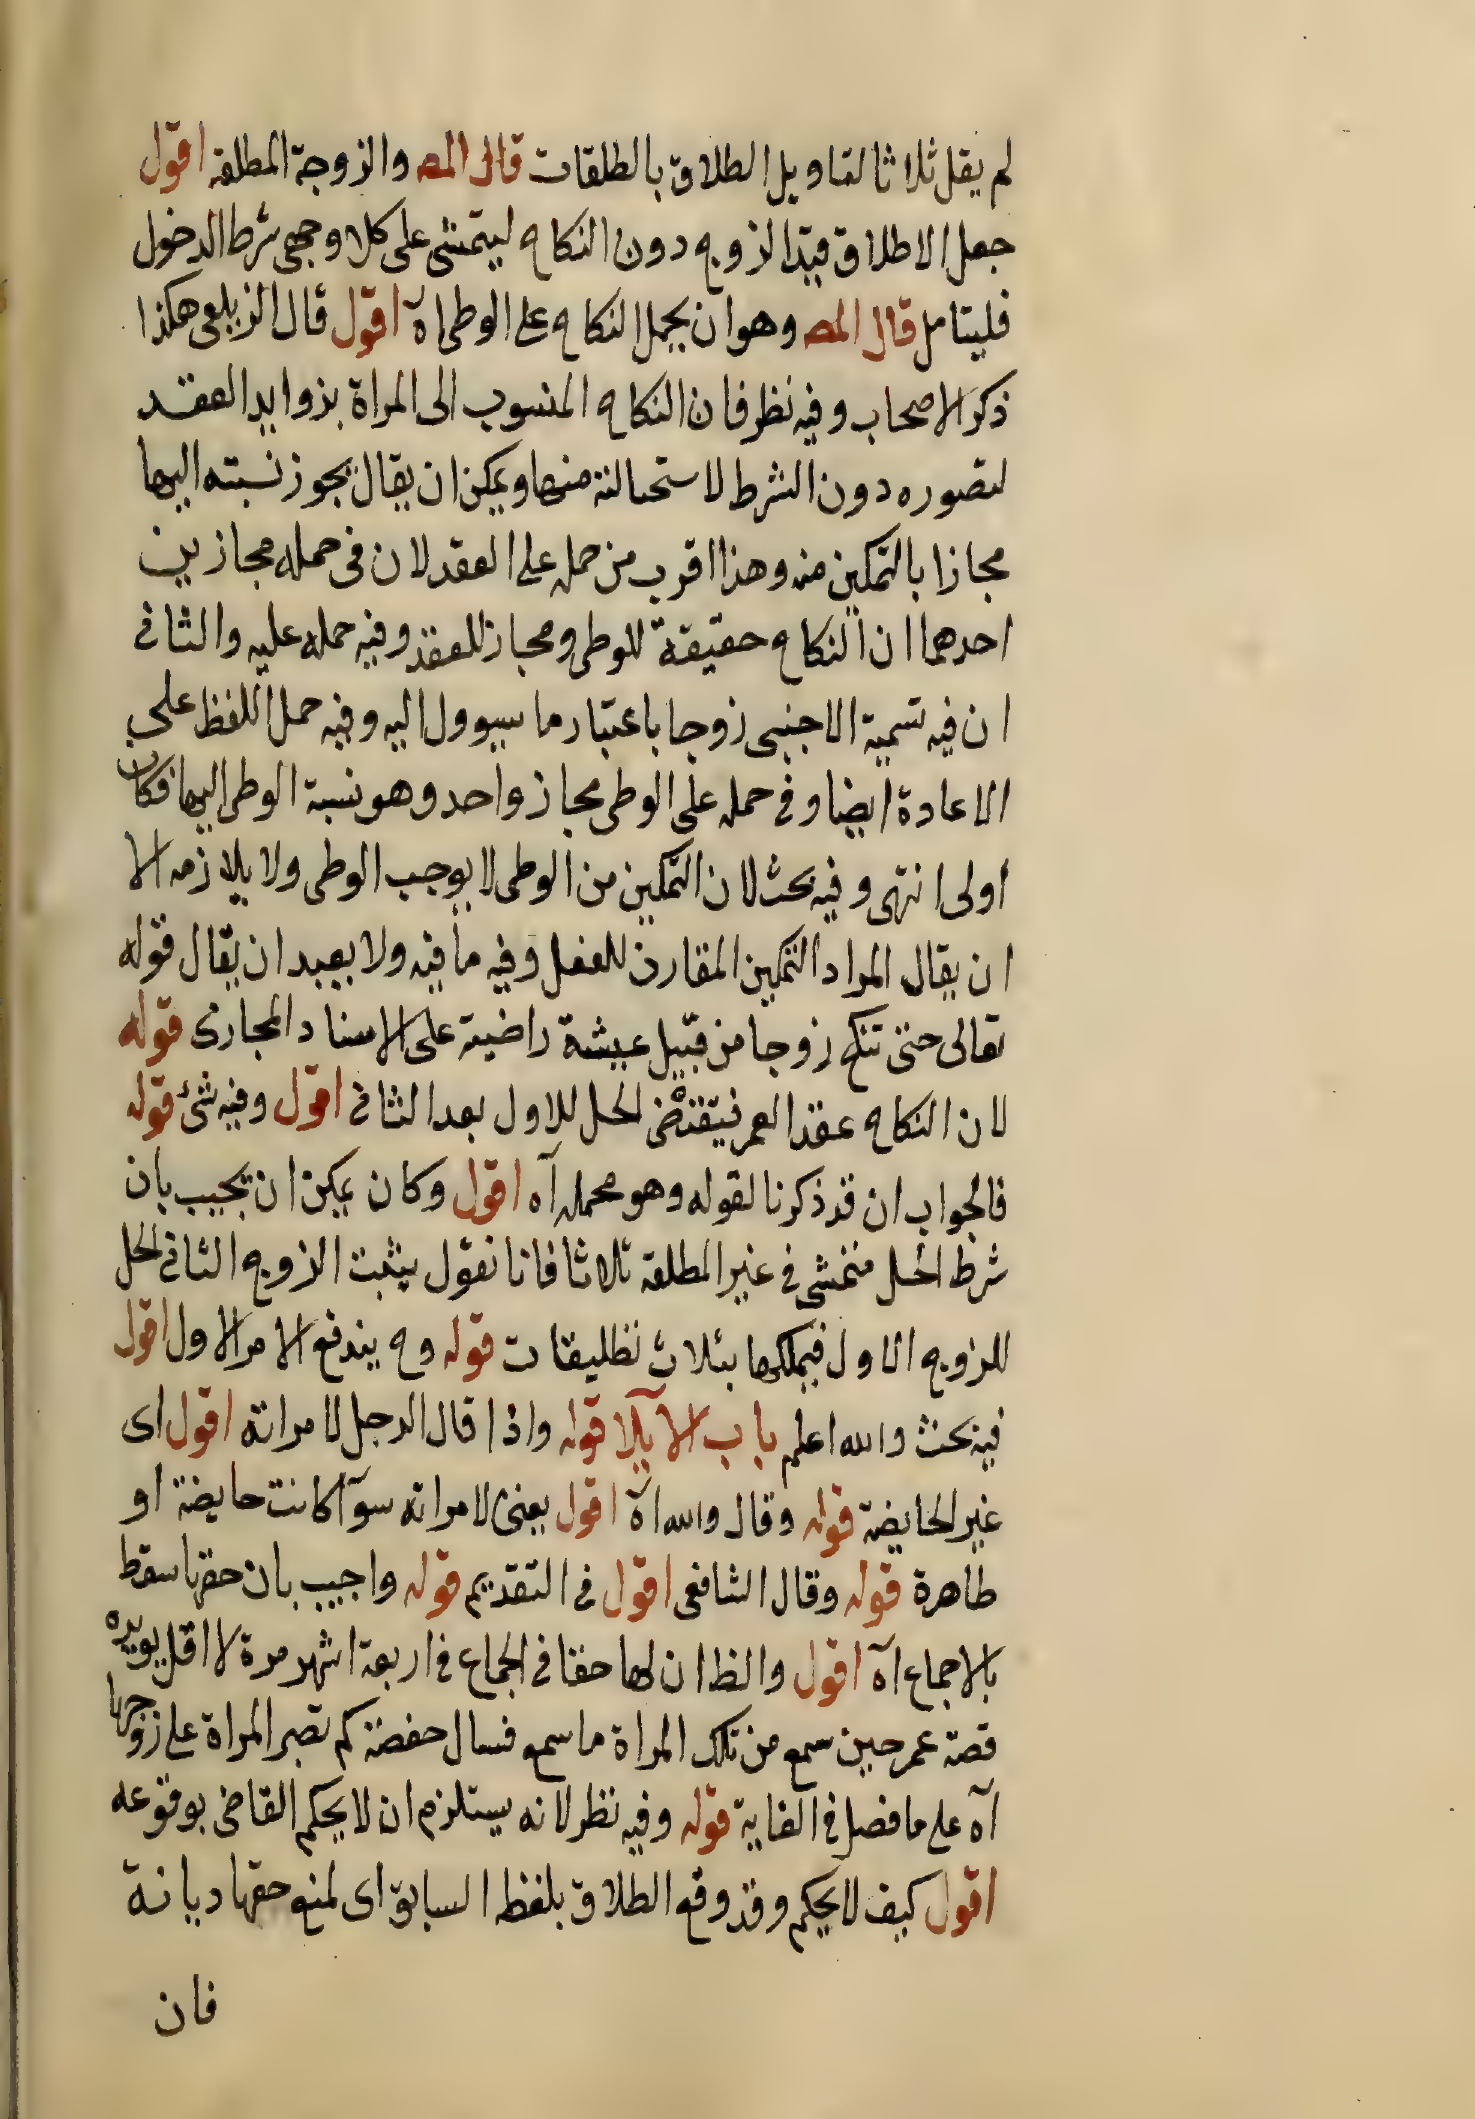 لم يقل ثلاثا لتاويل الطلاق بالطلقات قال المصـ والزوجة المطلقة اقول
جعل الاطلاق قيد الزوج دون النكاح ليتمشى على كلا وجهى شرط الدخول
فليتامل قال المصـ وهو ان يحمل النكاح على الوطى اه اقول قال الزيلعى هكذا
ذكر الاصحاب وفيه نظر فان النكاح المنسوب الى المراة يراد به العقد
لتصوره دون الشرط لاستحالته منها ويمكن ان يقال يجوز نسبته اليها
مجازا بالتمكين منه وهذا اقرب من حمله على العقد لان فى حمله مجازين
احدهما ان النكاح حقيقة للوطى ومجاز للعقد وفيه حمله عليه والثانى
ان فيه تسمية الاجنبى زوجا باعتبار ما سيوول اليه وفيه حمل اللفظ على
الاعادة ايضا وفى حمله على الوطى مجاز واحد وهو نسبة الوطى اليها فكان
اولى انتهى وفيه بحث لان التمكين من الوطى لا يوجب الوطى ولا يلازمه الا
ان يقال المراد التمكين المقارن للفعل وفيه ما فيه ولا يبعد ان يقال قوله
تعالى حتى تنكح زوجا من قبيل عيشة راضية على الاسناد المجازى قوله
لان النكاح عقد العمر فيقتضى الحل للاول بعد الثانى اقول وفيه شئ قوله
فالجواب ان قد ذكرنا لقوله وهو محمله آه اقول وكان يمكن ان يجيب بان
شرط الحل متمشى فى غير المطلقة ثلاثا فانا نقول يثبت الزوج الثانى الحل
للزوج الاول فيملكها بثلاث تطليقات قوله وح يندفع الامر الاول اقول
فيه بحث والله اعلم باب الآيلا قوله واذا قال الرجل لامراته اقول اى
غير الحايضة قوله وقال والله اه اقول يعنى لامراته سوآ كانت حايضة او
طاهرة قوله وقال الشافعى اقول فى التقديم قوله واجيب بان حقها سقط
بالاجماع آه اقول والظ ان لها حقا فى الجماع فى اربعة اشهر مرة لا اقل يويده
قصة عمر حين سمع من تلك المراة ما سمع فسال حفصة كم تصبر المراة على زوجها
آه على ما فصل فى الغاية قوله وفيه نظر لانه يستلزم ان لا يحكم القاضى بوقوعه
اقول كيف لا يحكم وقد وقع الطلاق بلفظه السابق اى لمنع حقها ديانة
فان